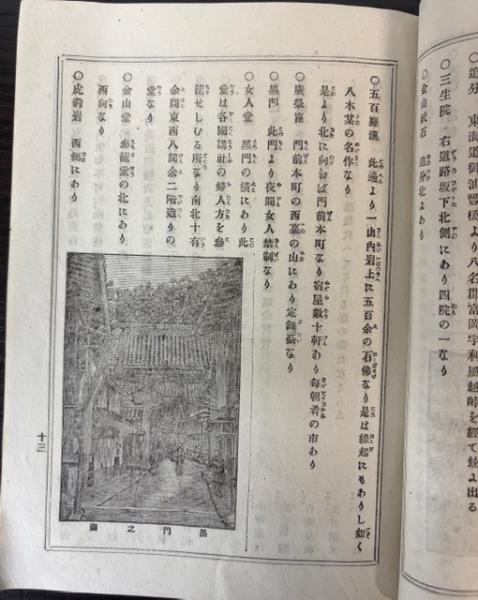 追分 東海道御油豊橋より八名郡富岡宇利風越峠を經て玆よ出る
〇三生院 右道路坂下北側にあり四院の一なり
〇金山硯石 追分北よあり
〇五百羅漢 此邊より一山內岩上に五百余の石佛なり是は緣起にもありし如く
八木某の名作なり
是より北に向おば門前本町なり宿屋數十軒あり每朝肴の市あり
門前本町の西裏の山にあり定錦嶽なり
〇黑門 此門より夜間女人禁制なり
〇女人堂 黑門の橫にあり此
堂は各國講社の婦人方を參
籠せしむる所なり南北十有
余間東西八間余二階造りの
堂なり
〇金山堂 參籠堂の北にあり
西向なり
〇虎豹岩 西側にあり
黑門之圖
十三